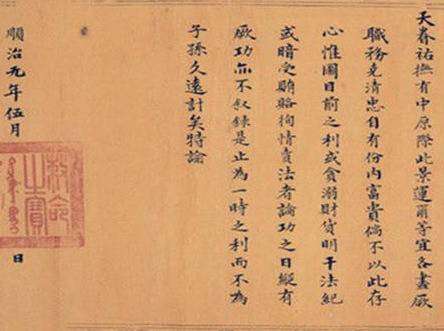 天眷祐撫有中原際此景運爾等宜各盡厥
職務克清忠自有份内富貴倘不以此存
心惟圖目前之利或貪溺財貨明干法紀
或暗受賄賂拘情賣法者論功之日縱有
厥功亦不叙錄是止為一時之利而不為
子孫久遠計矣特諭
順治元年伍月 日
敕命之寶